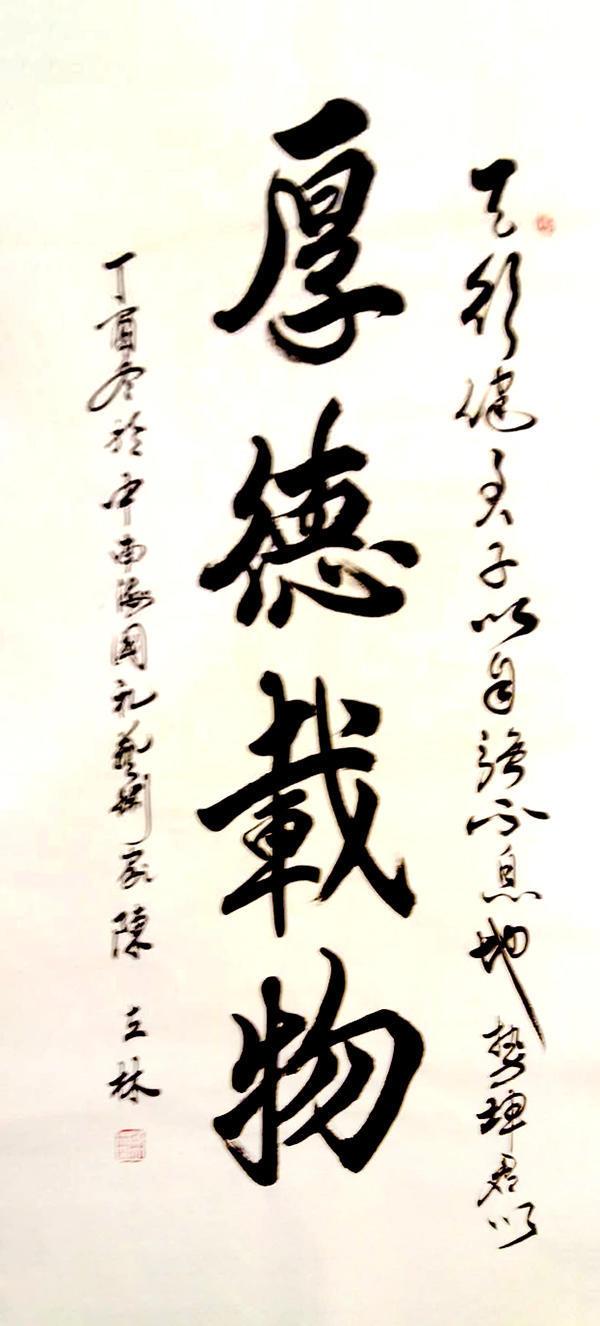 天行健君子以自強不息地勢坤君以
厚德載物
丁酉冬於中南海國礼藝術家陳立林